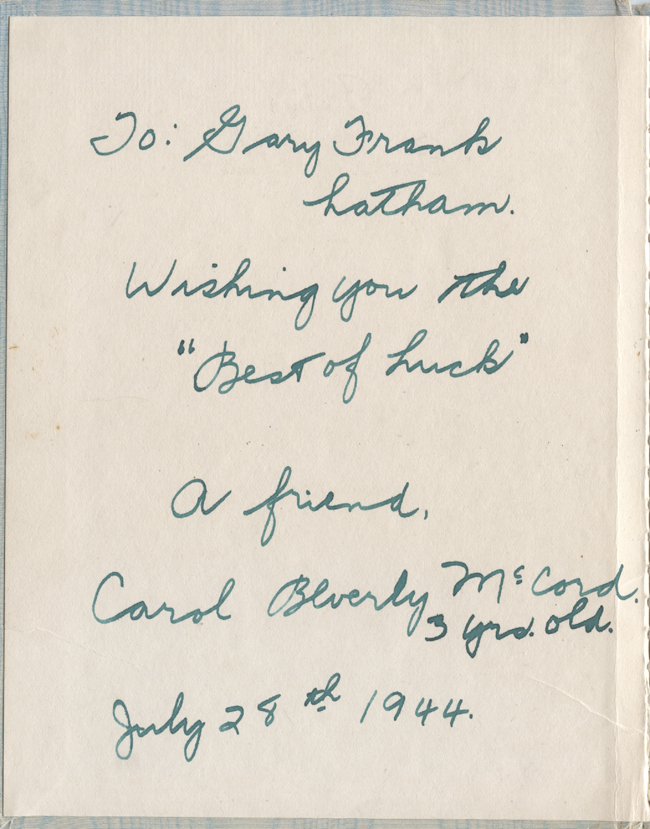 To: Gary Frank
Latham.
Wishing you the
"Best of Luck"
A friend,
Carol Beverly McCord.
3 yrs. old.
July 28th 1944.